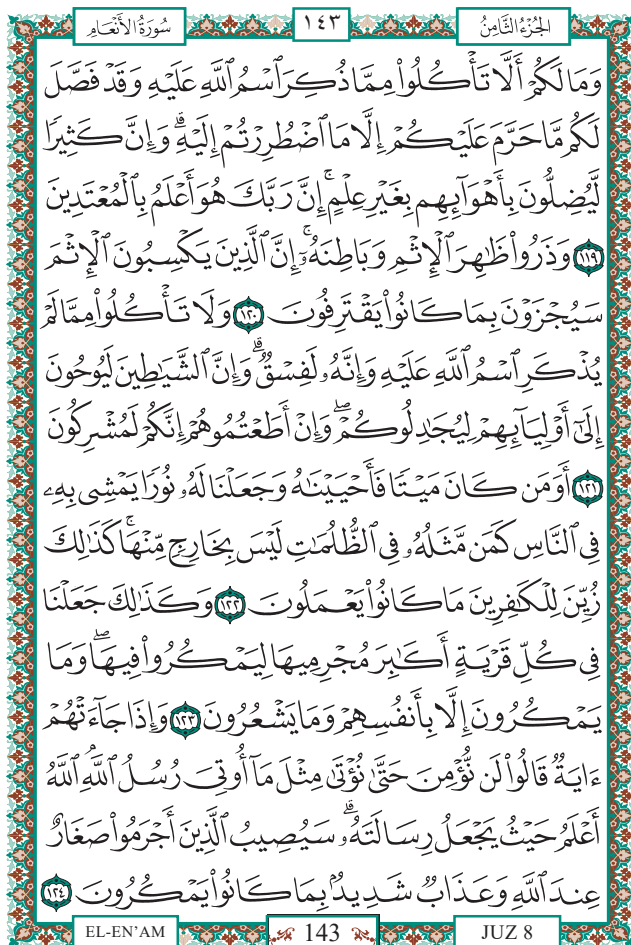 سُورَةُ الأَنْعَامِ ١٤٣ الجُزْءُ الثَّامِنُ
وَمَا لَكُمْ أَلَّا تَأْكُلُوا۟ مِمَّا ذُكِرَ ٱسْمُ ٱللَّهِ عَلَيْهِ وَقَدْ فَصَّلَ
لَكُم مَّا حَرَّمَ عَلَيْكُمْ إِلَّا مَا ٱضْطُرِرْتُمْ إِلَيْهِ ۗ وَإِنَّ كَثِيرًا
لَّيُضِلُّونَ بِأَهْوَآئِهِم بِغَيْرِ عِلْمٍ ۚ إِنَّ رَبَّكَ هُوَ أَعْلَمُ بِٱلْمُعْتَدِينَ
١١٩ وَذَرُوا۟ ظَـٰهِرَ ٱلْإِثْمِ وَبَاطِنَهُۥٓ ۚ إِنَّ ٱلَّذِينَ يَكْسِبُونَ ٱلْإِثْمَ
سَيُجْزَوْنَ بِمَا كَانُوا۟ يَقْتَرِفُونَ ١٢٠ وَلَا تَأْكُلُوا۟ مِمَّا لَمْ
يُذْكَرِ ٱسْمُ ٱللَّهِ عَلَيْهِ وَإِنَّهُۥ لَفِسْقٌ ۗ وَإِنَّ ٱلشَّيَـٰطِينَ لَيُوحُونَ
إِلَىٰٓ أَوْلِيَآئِهِمْ لِيُجَـٰدِلُوكُمْ ۖ وَإِنْ أَطَعْتُمُوهُمْ إِنَّكُمْ لَمُشْرِكُونَ
١٢١ أَوَمَن كَانَ مَيْتًا فَأَحْيَيْنَـٰهُ وَجَعَلْنَا لَهُۥ نُورًا يَمْشِى بِهِۦ
فِى ٱلنَّاسِ كَمَن مَّثَلُهُۥ فِى ٱلظُّلُمَـٰتِ لَيْسَ بِخَارِجٍ مِّنْهَا ۚ كَذَٰلِكَ
زُيِّنَ لِلْكَـٰفِرِينَ مَا كَانُوا۟ يَعْمَلُونَ ١٢٢ وَكَذَٰلِكَ جَعَلْنَا
فِى كُلِّ قَرْيَةٍ أَكَـٰبِرَ مُجْرِمِيهَا لِيَمْكُرُوا۟ فِيهَا ۖ وَمَا
يَمْكُرُونَ إِلَّا بِأَنفُسِهِمْ وَمَا يَشْعُرُونَ ١٢٣ وَإِذَا جَآءَتْهُمْ
ءَايَةٌ قَالُوا۟ لَن نُّؤْمِنَ حَتَّىٰ نُؤْتَىٰ مِثْلَ مَآ أُوتِىَ رُسُلُ ٱللَّهِ ۘ ٱللَّهُ
أَعْلَمُ حَيْثُ يَجْعَلُ رِسَالَتَهُۥ ۗ سَيُصِيبُ ٱلَّذِينَ أَجْرَمُوا۟ صَغَارٌ
عِندَ ٱللَّهِ وَعَذَابٌ شَدِيدٌۢ بِمَا كَانُوا۟ يَمْكُرُونَ ١٢٤
EL-EN’AM 143 JUZ 8